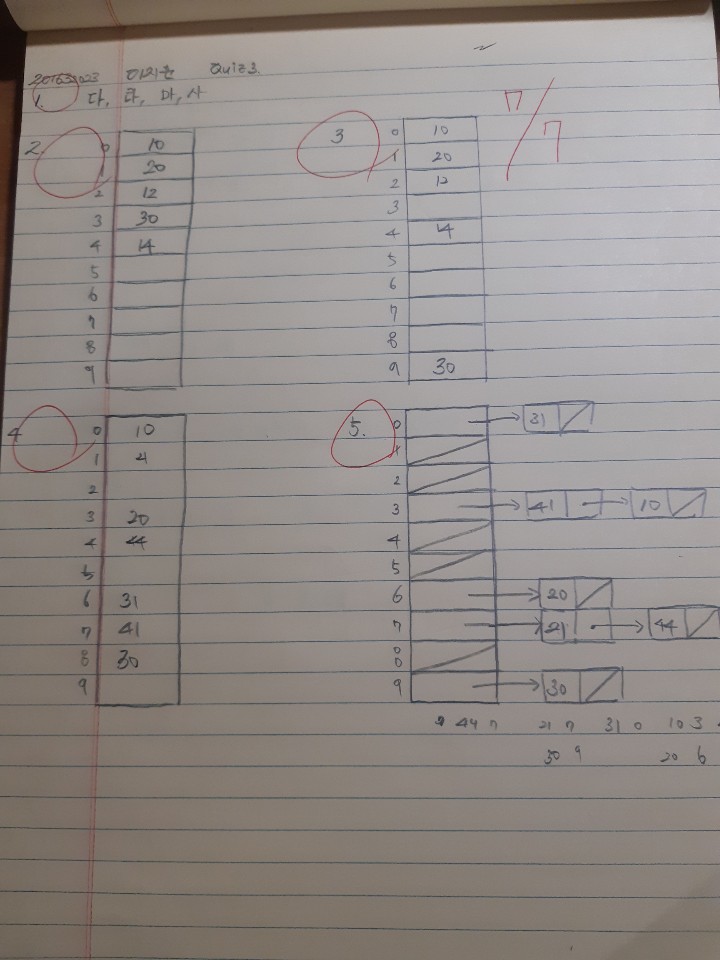 Quiz 3.
1. 다, 라, 마, 사
7/7
2
0 10
1 20
2 12
3 30
4 14
5
6
7
8
9
3
0 10
1 20
2 12
3
4 14
5
6
7
8
9 30
4
0 10
1 4
2
3 20
4 44
5
6 31
7 41
8 30
9
5.
0 31
1
2
3 41 10
4
5
6 20
7 21 44
8
9 30
44 7 21 7 31 0 10 3
30 9 20 6